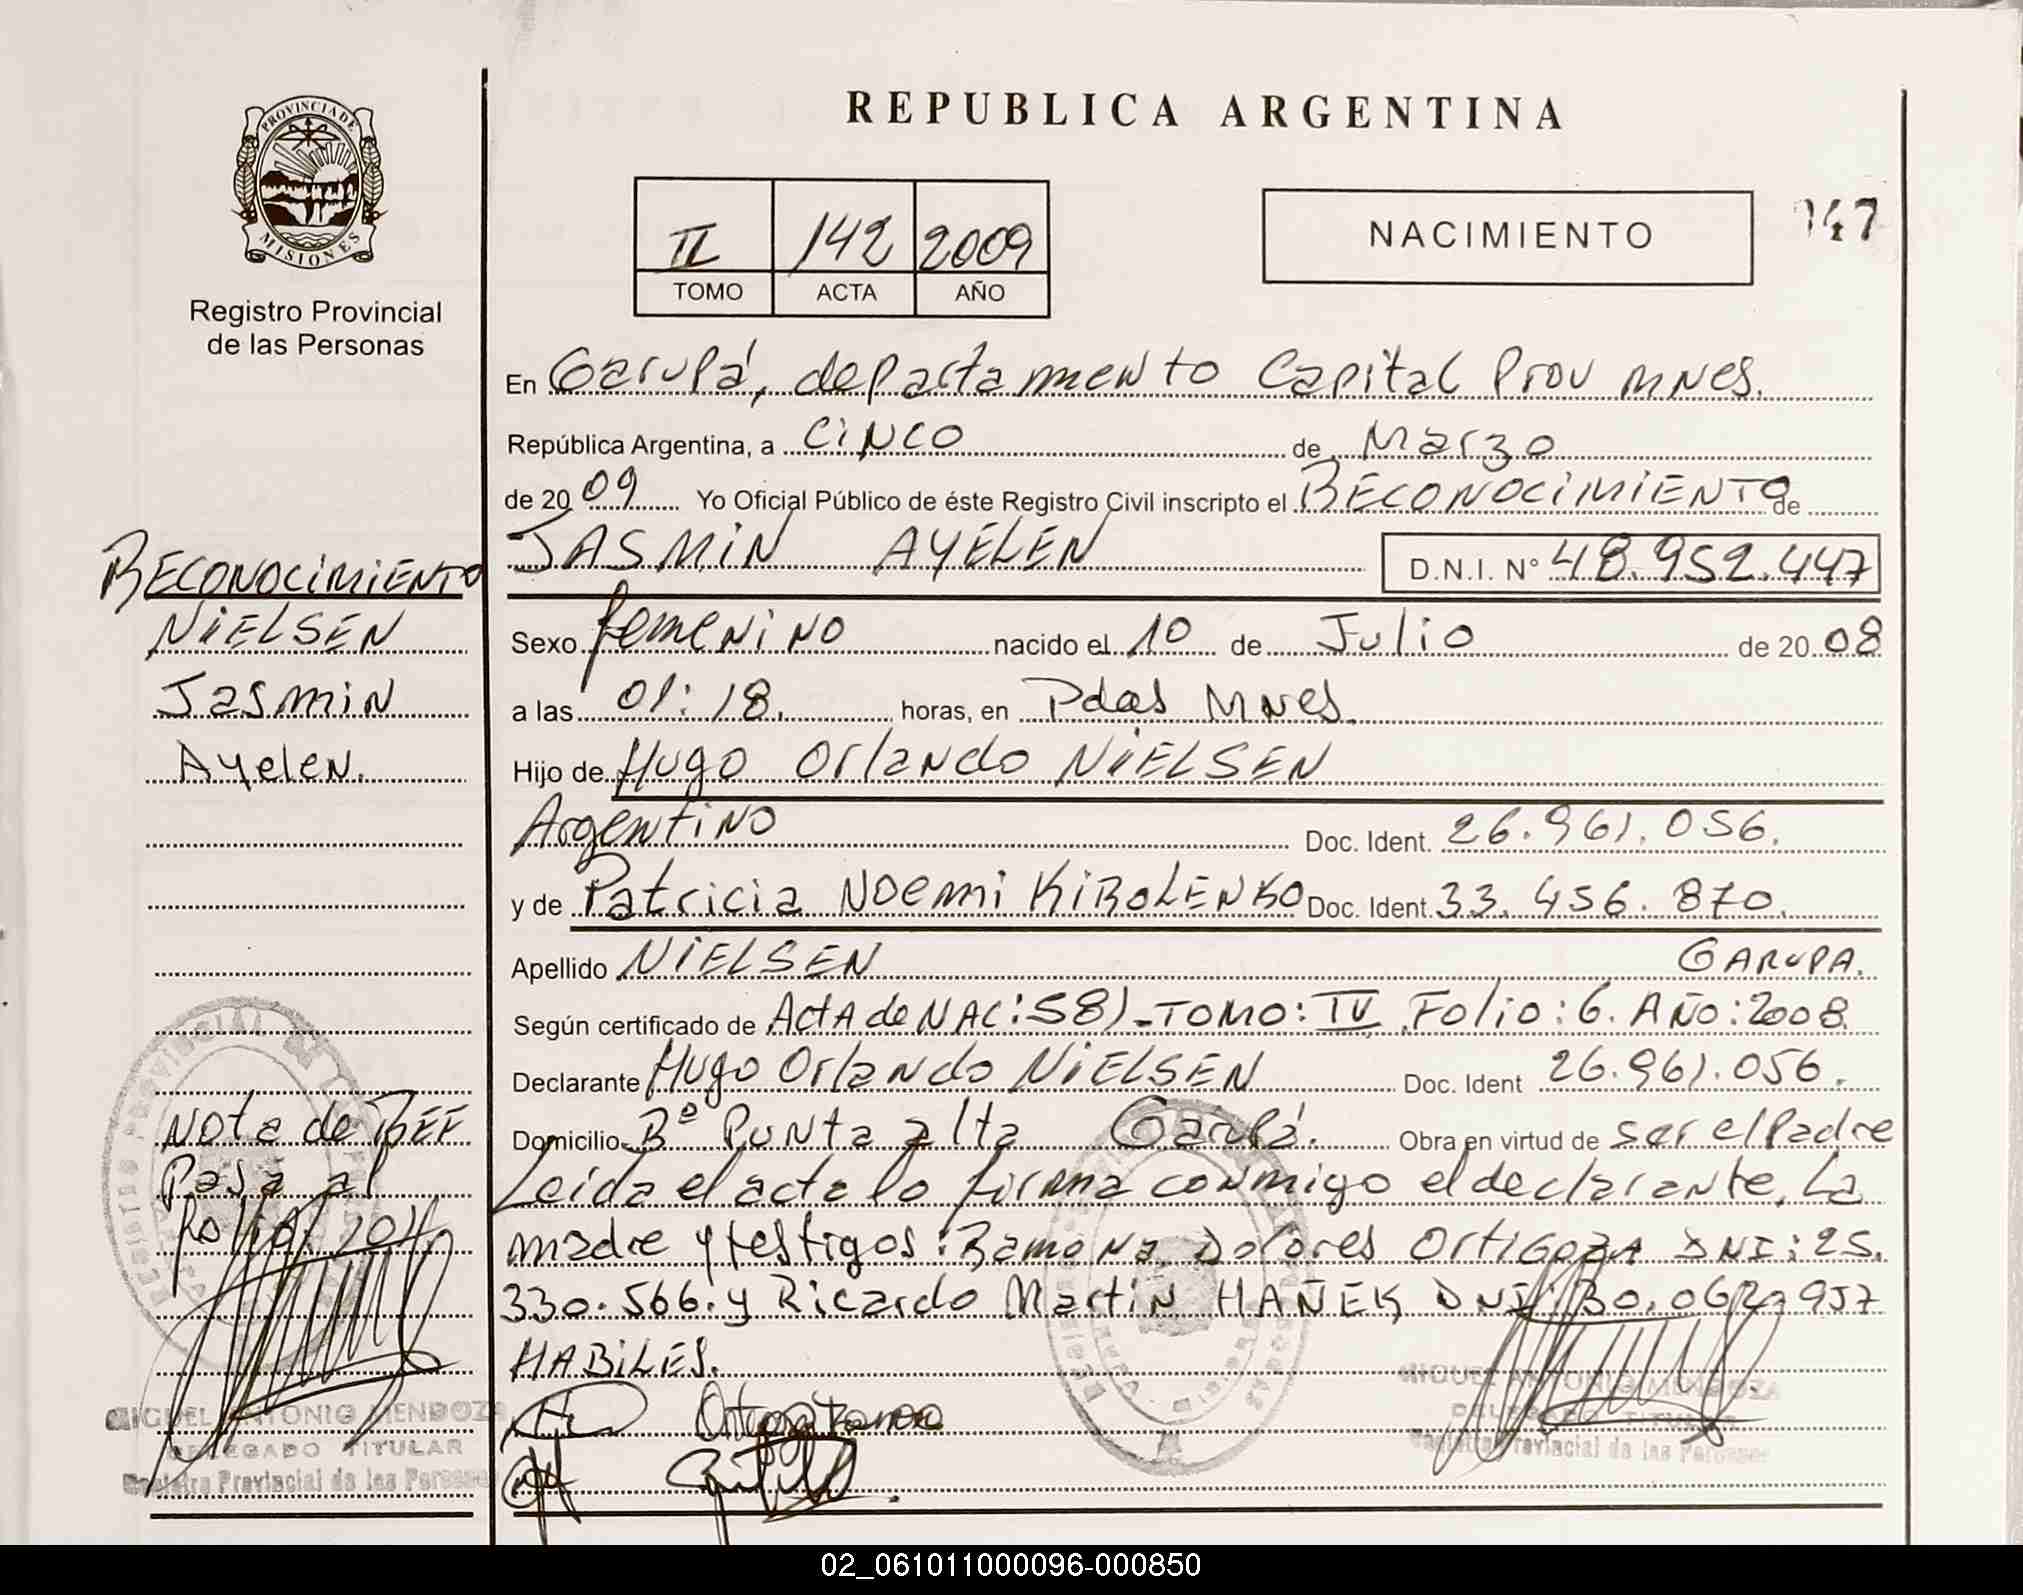 PROVINCIA DE
MISIONES
Registro Provincial
de las Personas
REPUBLICA ARGENTINA
II 142 2009
TOMO ACTA AÑO
NACIMIENTO
147
En Garupá, departamento Capital Prov MNES.
República Argentina, a CINCO de Marzo
de 2009 Yo Oficial Público de éste Registro Civil inscripto el RECONOCIMIENTO de
JASMIN AYELEN D.N.I. N° 48.952.447
Sexo femenino nacido el 10 de Julio de 2008
a las 01:18. horas, en Pdas MNES.
Hijo de Hugo Orlando NIELSEN
Argentino Doc. Ident. 26.961.056.
y de Patricia NOEMI KIROLENKO Doc. Ident. 33.456.870.
Apellido NIELSEN GARUPA.
Según certificado de Acta de NAC: 581-TOMO: IV Folio: 6. AÑO: 2008
Declarante Hugo Orlando NIELSEN Doc. Ident 26.961.056.
Domicilio Bº Punta alta Garupá. Obra en virtud de ser el Padre
Leída el acta lo firma conmigo el declarante, La
madre y testigos: Ramona Dolores ORTIGOZA DNI: 25.
330.566. y Ricardo Martin HAÑEK DNI: 30.062.957
HABILES.
MIGUEL ANTONIO MENDOZA
DELEGADO TITULAR
Registro Provincial de las Personas
RECONOCIMIENTO
NIELSEN
Jasmin
Ayelen.
Nota de REF
Pasa al
folio
MIGUEL ANTONIO MENDOZA
DELEGADO TITULAR
Registro Provincial de las Personas
02_061011000096-000850